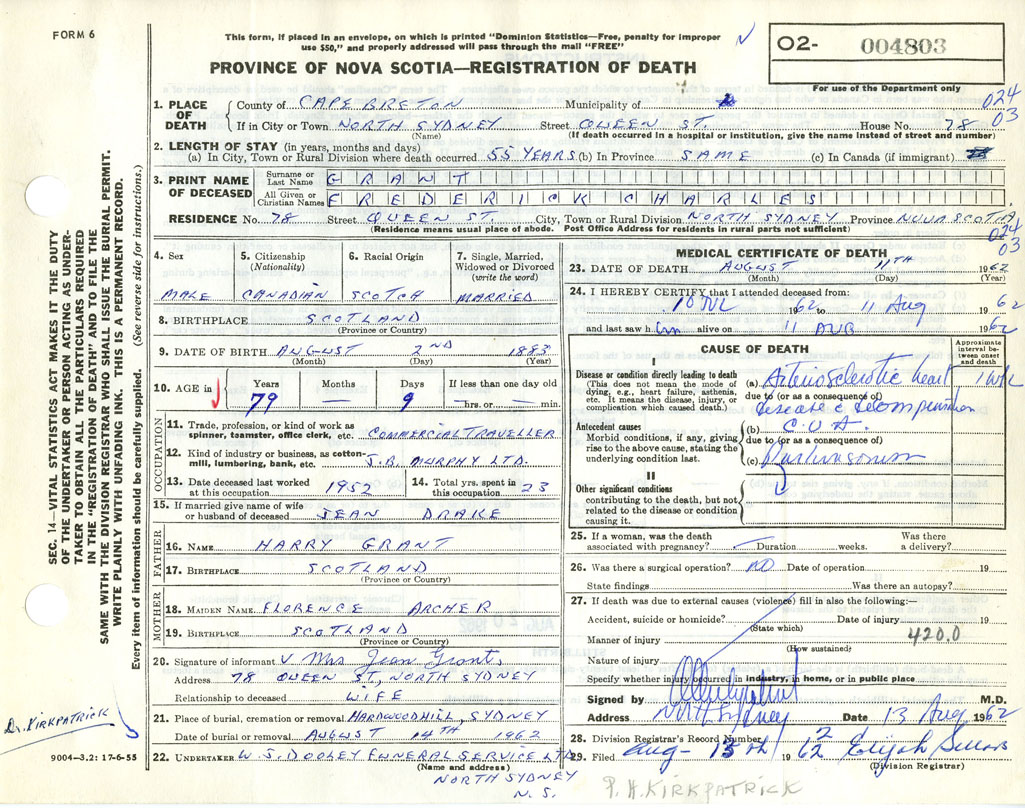 FORM 6
This form, if placed in an envelope, on which is printed "Dominion Statistics—Free, penalty for improper
use $50," and properly addressed will pass through the mail "FREE"
02- 004803
PROVINCE OF NOVA SCOTIA—REGISTRATION OF DEATH
For use of the Department only
024
03
1. PLACE OF DEATH
County of CAPE BRETON Municipality of
If in City or Town NORTH SYDNEY Street QUEEN ST. House No. 78
(Name) (If death occurred in a hospital or institution, give the name instead of street and number)
2. LENGTH OF STAY (in years, months and days)
(a) In City, Town or Rural Division where death occurred 55 YEARS (b) In Province SAME (c) In Canada (if immigrant)
3. PRINT NAME OF DECEASED
Surname or Last Name GRANT
All Given or Christian Names FREDERICK CHARLES
RESIDENCE No. 78 Street QUEEN ST. City, Town or Rural Division NORTH SYDNEY Province NOVA SCOTIA
(Residence means usual place of abode. Post Office Address for residents in rural parts not sufficient)
024
03
4. Sex
MALE
5. Citizenship
(Nationality)
CANADIAN
6. Racial Origin
SCOTCH
7. Single, Married,
Widowed or Divorced
(write the word)
MARRIED
8. BIRTHPLACE SCOTLAND
(Province or Country)
9. DATE OF BIRTH AUGUST 2ND 1883
(Month) (Day) (Year)
10. AGE in
Years Months Days If less than one day old
79 — 9 hrs. or min.
OCCUPATION
11. Trade, profession, or kind of work as
spinner, teamster, office clerk, etc. COMMERCIAL TRAVELLER
12. Kind of industry or business, as cotton-
mill, lumbering, bank, etc. J.B. MURPHY LTD.
13. Date deceased last worked
at this occupation 1952
14. Total yrs. spent in
this occupation 23
15. If married give name of wife
or husband of deceased JEAN DRAKE
FATHER
16. NAME HARRY GRANT
17. BIRTHPLACE SCOTLAND
(Province or Country)
MOTHER
18. MAIDEN NAME FLORENCE ARCHER
19. BIRTHPLACE SCOTLAND
(Province or Country)
20. Signature of informant Mrs Jean Grant
Address 78 QUEEN ST, NORTH SYDNEY
Relationship to deceased WIFE
21. Place of burial, cremation or removal HARDWOODHILL, SYDNEY
Date of burial or removal AUGUST 14TH 1962
22. UNDERTAKER W.J. DOOLEY FUNERAL SERVICE LTD
(Name and address)
NORTH SYDNEY
N. S.
MEDICAL CERTIFICATE OF DEATH
23. DATE OF DEATH AUGUST 11TH 1962
(Month) (Day) (Year)
24. I HEREBY CERTIFY that I attended deceased from:
10 JUL 1962 to 11 Aug 1962
and last saw him alive on 11 AUG 1962
CAUSE OF DEATH
Approximate
interval be-
tween onset
and death
I
Disease or condition directly leading to death
(This does not mean the mode of
dying, e.g., heart failure, asthenia,
etc. It means the disease, injury, or
complication which caused death.)
(a) Arteriosclerotic heart 1 wk
due to (or as a consequence of)
disease c decompensation
Antecedent causes
Morbid conditions, if any, giving
rise to the above cause, stating the
underlying condition last.
(b) C.V.A.
due to (or as a consequence of)
(c) Parkinsonism
II
Other significant conditions
contributing to the death, but not
related to the disease or condition
causing it.
25. If a woman, was the death
associated with pregnancy? Duration weeks.
Was there
a delivery?
26. Was there a surgical operation? NO Date of operation 19
State findings Was there an autopsy?
27. If death was due to external causes (violence) fill in also the following:—
Accident, suicide or homicide? Date of injury 19
(State which)
420.0
Manner of injury
(How sustained)
Nature of injury
Specify whether injury occurred in industry, in home, or in public place
Signed by M.D.
Address North Sydney Date 13 Aug 1962
28. Division Registrar's Record Number 2
29. Filed Aug- 15th 1962
(Division Registrar)
P. H. KIRKPATRICK
SEC. 14—VITAL STATISTICS ACT MAKES IT THE DUTY
OF THE UNDERTAKER OR PERSON ACTING AS UNDER-
TAKER TO OBTAIN ALL THE PARTICULARS REQUIRED
IN THE "REGISTRATION OF DEATH" AND TO FILE THE
SAME WITH THE DIVISION REGISTRAR WHO SHALL ISSUE THE BURIAL PERMIT.
WRITE PLAINLY WITH UNFADING INK. THIS IS A PERMANENT RECORD.
Every item of information should be carefully supplied. (See reverse side for instructions.)
Dr. KIRKPATRICK
9004—3.2: 17-6-55